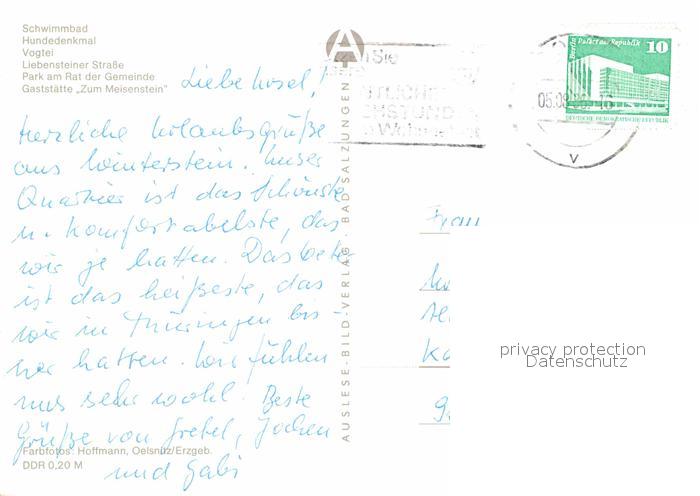 Schwimmbad
Hundedenkmal
Vogtei
Liebensteiner Straße
Park am Rat der Gemeinde
Gaststätte „Zum Meisenstein"
Liebe Rosel!
Herzliche Urlaubsgrüße
aus Winterstein. Unser
Quartier ist das Schönste
u. Komfortabelste, das
wir je hatten. Das Wetter
ist das heißeste, das
wir in Thüringen bis-
her hatten. Wir fühlen
uns sehr wohl. Beste
Grüße von Gretel, Jochen
und Gabi
Farbfotos: Hoffmann, Oelsnitz/Erzgeb.
DDR 0,20 M
AUSLESE-BILD-VERLAG · BAD SALZUNGEN
A
Berlin Palast der Republik 10
DEUTSCHE DEMOKRATISCHE REPUBLIK
Sie
05.08
V
Frau
privacy protection
Datenschutz